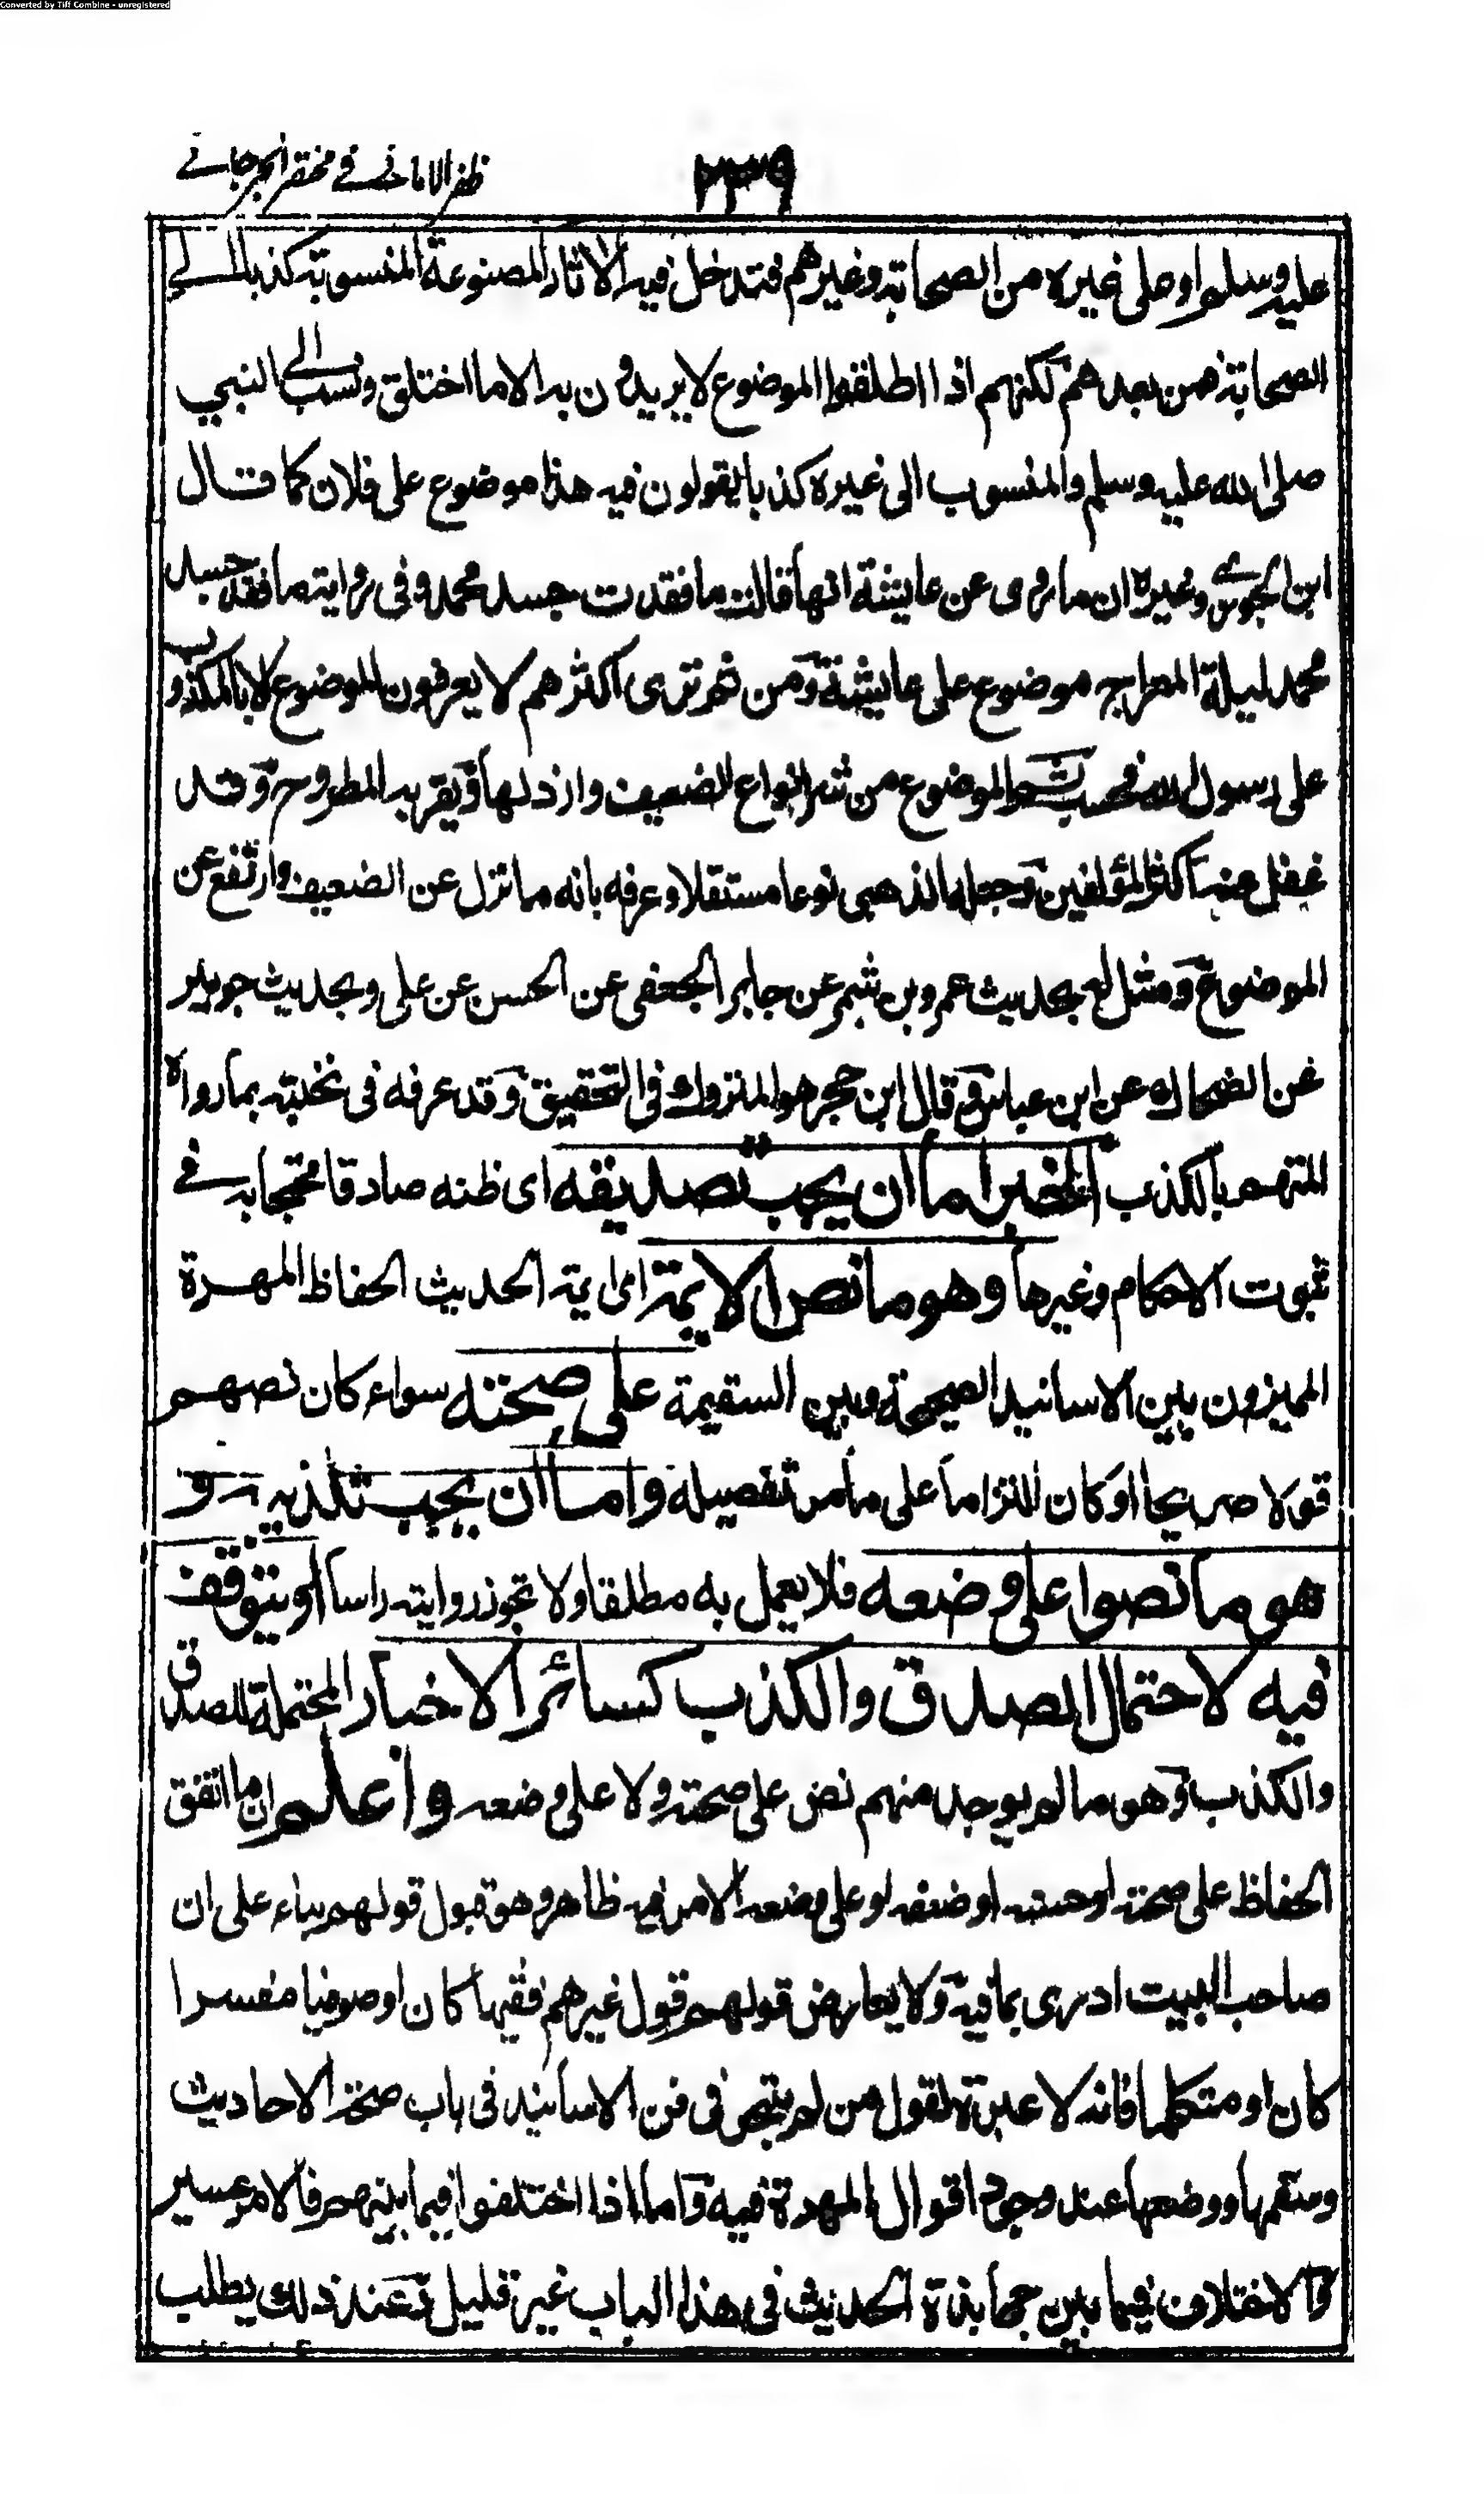 Converted by Tiff Combine - unregistered
ظفر الامانى في مختصر الجرجاني
٢٣٩
عليه وسلم او على غيره من الصحابة وغيرهم فتدخل فيه الاثار المصنوعة المنسوبة كذبا الى
الصحابة فمن بعدهم لكنهم اذا اطلقوا الموضوع لا يريدون به الا ما اختلق ونسب الى النبي
صلى الله عليه وسلم والمنسوب الى غيره كذبا يقولون فيه هذا موضوع على فلان كما قال
ابن الجوزي وغيره ان ما روى عن عايشة انها قالت ما فقدت جسد محمد وفى رواية ما فقد جسد
محمد ليلة المعراج موضوع على عايشة ومن ثم ترى اكثرهم لا يعرفون الموضوع الا بالمكذوب
على رسول الله فحسب ثم الموضوع من شر انواع الضعيف وارذلها ويقربه المطروح وقد
غفل عنه اكثر المؤلفين وجعله الذهبى نوعا مستقلا وعرفه بانه ما نزل عن الضعيف وارتفع عن
الموضوع ومثل له بحديث عمرو بن شمر عن جابر الجعفى عن الحسن عن على وبحديث جويبر
عن الضحاك عن ابن عباس وقال ابن حجر هو المتروك فى التحقيق وقد عرفه فى نخبته بما رواه
المتهم بالكذب الخبر اما ان يجب تصديقه اى ظنه صادقا محتجا به في
ثبوت الاحكام وغيرها وهو ما نص الايمة اى ايمة الحديث الحفاظ المهرة
المميزون بين الاسانيد الصحيحة وبين السقيمة على صحته سواء كان نصهم
قولا صريحا او كان التزاما على ما مر تفصيله واما ان يجب تكذيبه و
هو ما نصوا على وضعه فلا يعمل به مطلقا ولا تجوز روايته راسا او يتوقف
فيه لاحتمال الصدق والكذب كسائر الاخبار المحتملة للصدق
والكذب وهو ما لم يوجد منهم نص على صحته ولا على وضعه واعلم ان ما اتفق
الحفاظ على صحته او حسنه او ضعفه او على وضعه الامر فيه ظاهر وهو قبول قولهم بناء على ان
صاحب البيت ادرى بما فيه ولا يعارض قولهم قول غيرهم فقيها كان او صوفيا مفسرا
كان او متكلما فانه لا عبرة لقول من لم يتبحر فى فن الاسانيد فى باب صحة الاحاديث
وسقمها ووضعها عند وجود اقوال المهرة فيه واما اذا اختلفوا فيما بينهم فالامر عسير
والاختلاف فيما بين جهابذة الحديث فى هذا الباب غير قليل فعند ذلك يطلب